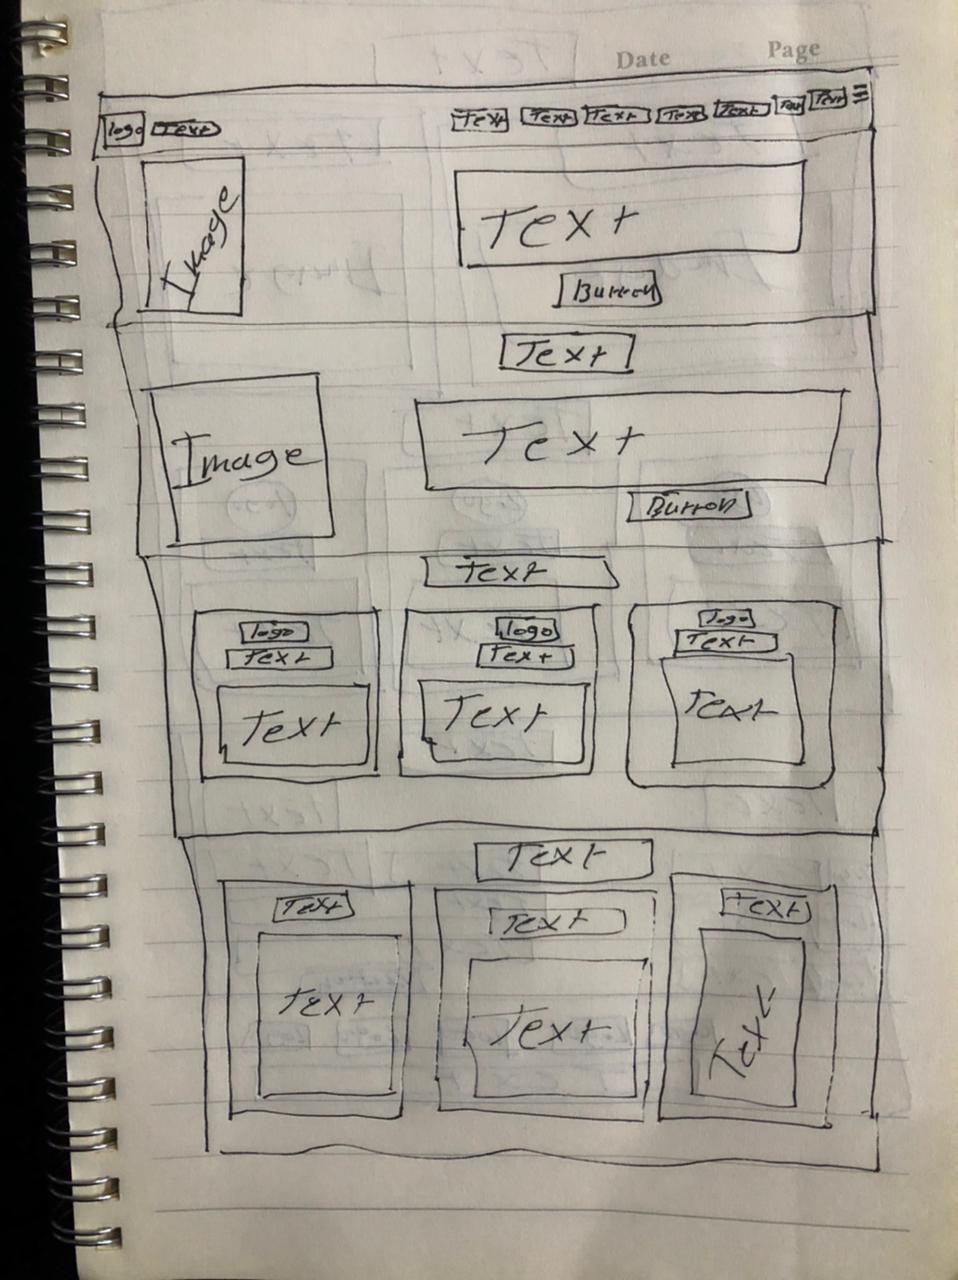 Date Page
logo Text Text Text Text Text Text Text Text
Image
Text
Burron
Text
Image
Text
Burron
Text
logo logo logo
Text Text Text
Text Text Text
Text
Text Text Text
Text Text Text